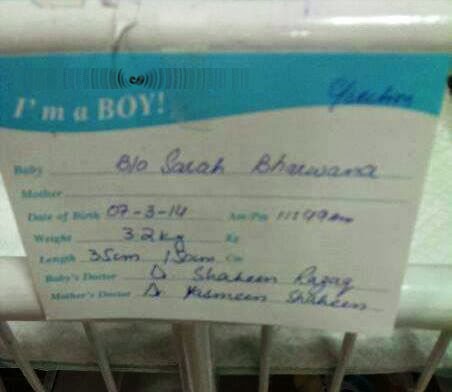 I'm a BOY!
Baby B/o Sarah Bharwana
Mother
Date of Birth 07-3-14 Am-Pm 11:49am
Weight 3.2kg Kg
Length 35cm Cm
Baby's Doctor Dr Shaheen Razaq
Mother's Doctor Dr Yasmeen Shaheen